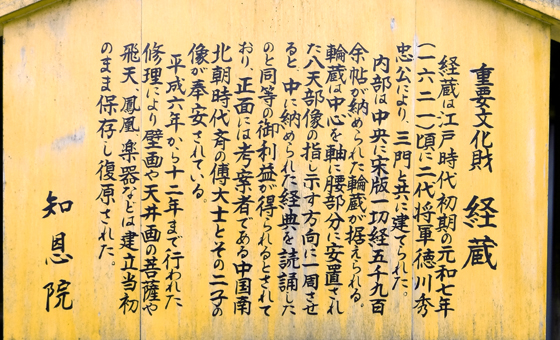 重要文化財　経蔵
経蔵は江戸時代初期の元和七年
(一六二一)頃に二代将軍徳川秀
忠公により、三門と共に建てられた。
内部は中央に宋版一切経五千九百
余帖が納められた輪蔵が据えられる。
輪蔵は中心を軸に腰部分に安置され
た八天部像の指し示す方向に一周させ
ると、中に納められた経典を読誦した
のと同等の御利益が得られるとされて
おり、正面には考案者である中国南
北朝時代斉の傅大士とその二子の
像が奉安されている。
平成六年から十二年まで行われた
修理により壁画や天井画の菩薩や
飛天、鳳凰、楽器などは建立当初
のまま保存し復原された。
知恩院